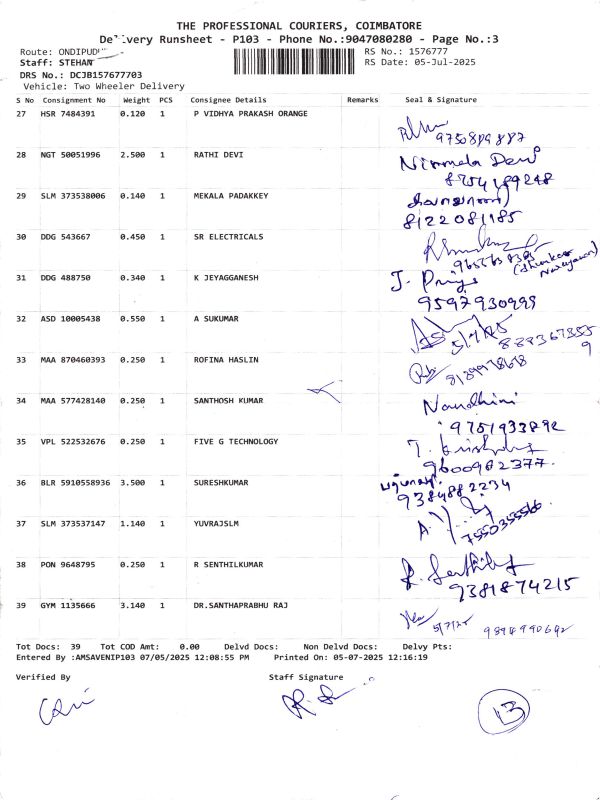 THE PROFESSIONAL COURIERS, COIMBATORE
Delivery Runsheet - P103 - Phone No.:9047080280 - Page No.:3
Route: ONDIPUDUR
RS No.: 1576777
Staff: STEHAN
RS Date: 05-Jul-2025
DRS No.: DCJB157677703
Vehicle: Two Wheeler Delivery
S No Consignment No Weight PCS Consignee Details Remarks Seal & Signature
27 HSR 7484391 0.120 1 P VIDHYA PRAKASH ORANGE
28 NGT 50051996 2.500 1 RATHI DEVI Nirmala Devi
8754189248
29 SLM 373538006 0.140 1 MEKALA PADAKKEY
8122081185
30 DDG 543667 0.450 1 SR ELECTRICALS
31 DDG 488750 0.340 1 K JEYAGGANESH J. Priya
9597930999
32 ASD 10005438 0.550 1 A SUKUMAR 5/7/25
33 MAA 870460393 0.250 1 ROFINA HASLIN
34 MAA 577428140 0.250 1 SANTHOSH KUMAR Nandhini
9751933892
35 VPL 522532676 0.250 1 FIVE G TECHNOLOGY
9600982377.
36 BLR 5910558936 3.500 1 SURESHKUMAR
9384882234
37 SLM 373537147 1.140 1 YUVRAJSLM
7550355566
38 PON 9648795 0.250 1 R SENTHILKUMAR
9381874215
39 GYM 1135666 3.140 1 DR.SANTHAPRABHU RAJ
5/7/25
Tot Docs: 39 Tot COD Amt: 0.00 Delvd Docs: Non Delvd Docs: Delvy Pts:
Entered By :AMSAVENIP103 07/05/2025 12:08:55 PM Printed On: 05-07-2025 12:16:19
Verified By Staff Signature
13